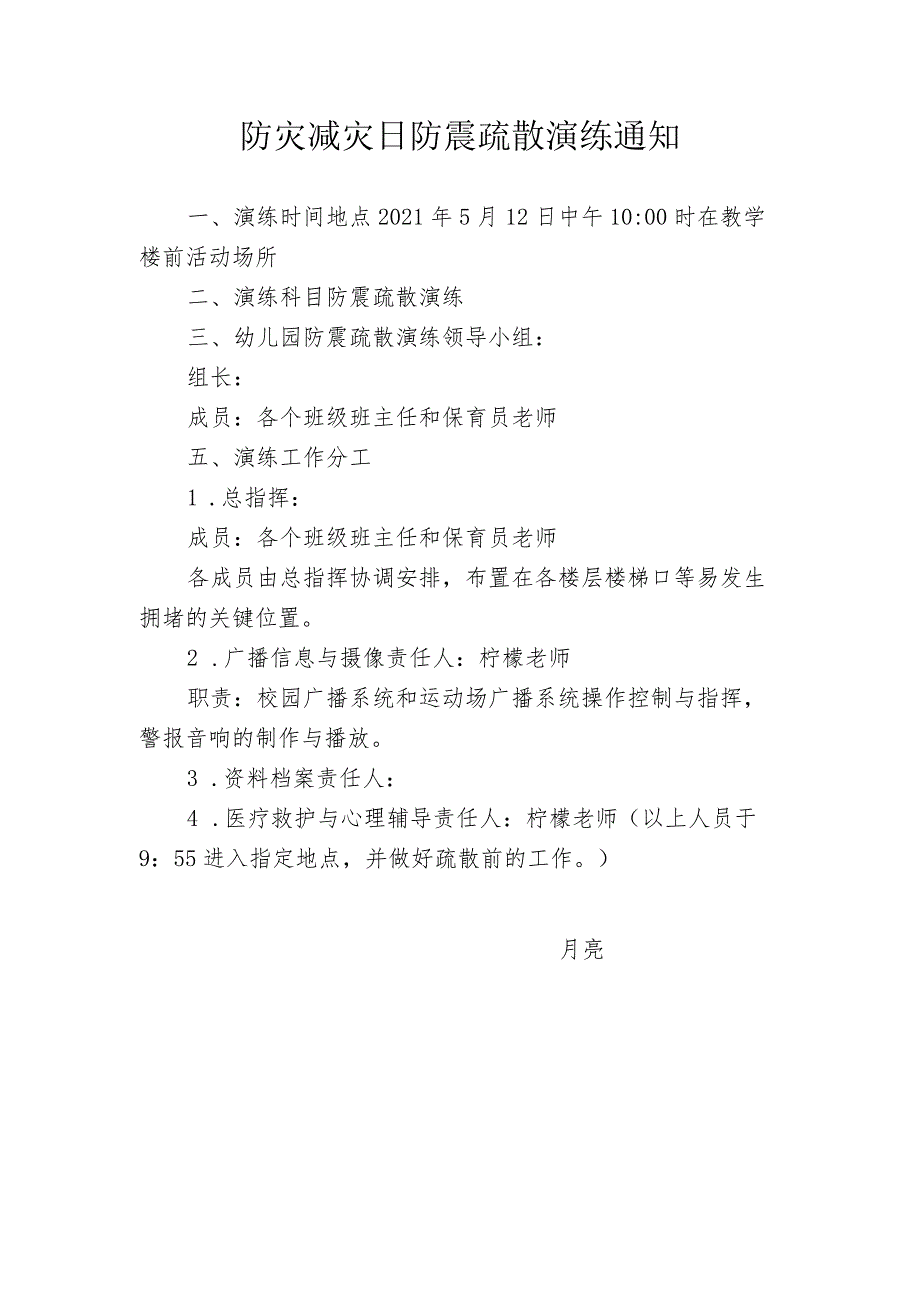 防灾减灾日防震疏散演练通知
一、演练时间地点 2021 年 5 月 12 日中午 10:00 时在教学
楼前活动场所
二、演练科目防震疏散演练
三、幼儿园防震疏散演练领导小组：
组长：
成员：各个班级班主任和保育员老师
五、演练工作分工
1 .总指挥：
成员：各个班级班主任和保育员老师
各成员由总指挥协调安排，布置在各楼层楼梯口等易发生
拥堵的关键位置。
2 .广播信息与摄像责任人：柠檬老师
职责：校园广播系统和运动场广播系统操作控制与指挥，
警报音响的制作与播放。
3 .资料档案责任人：
4 .医疗救护与心理辅导责任人：柠檬老师（以上人员于
9：55 进入指定地点，并做好疏散前的工作。）
月亮